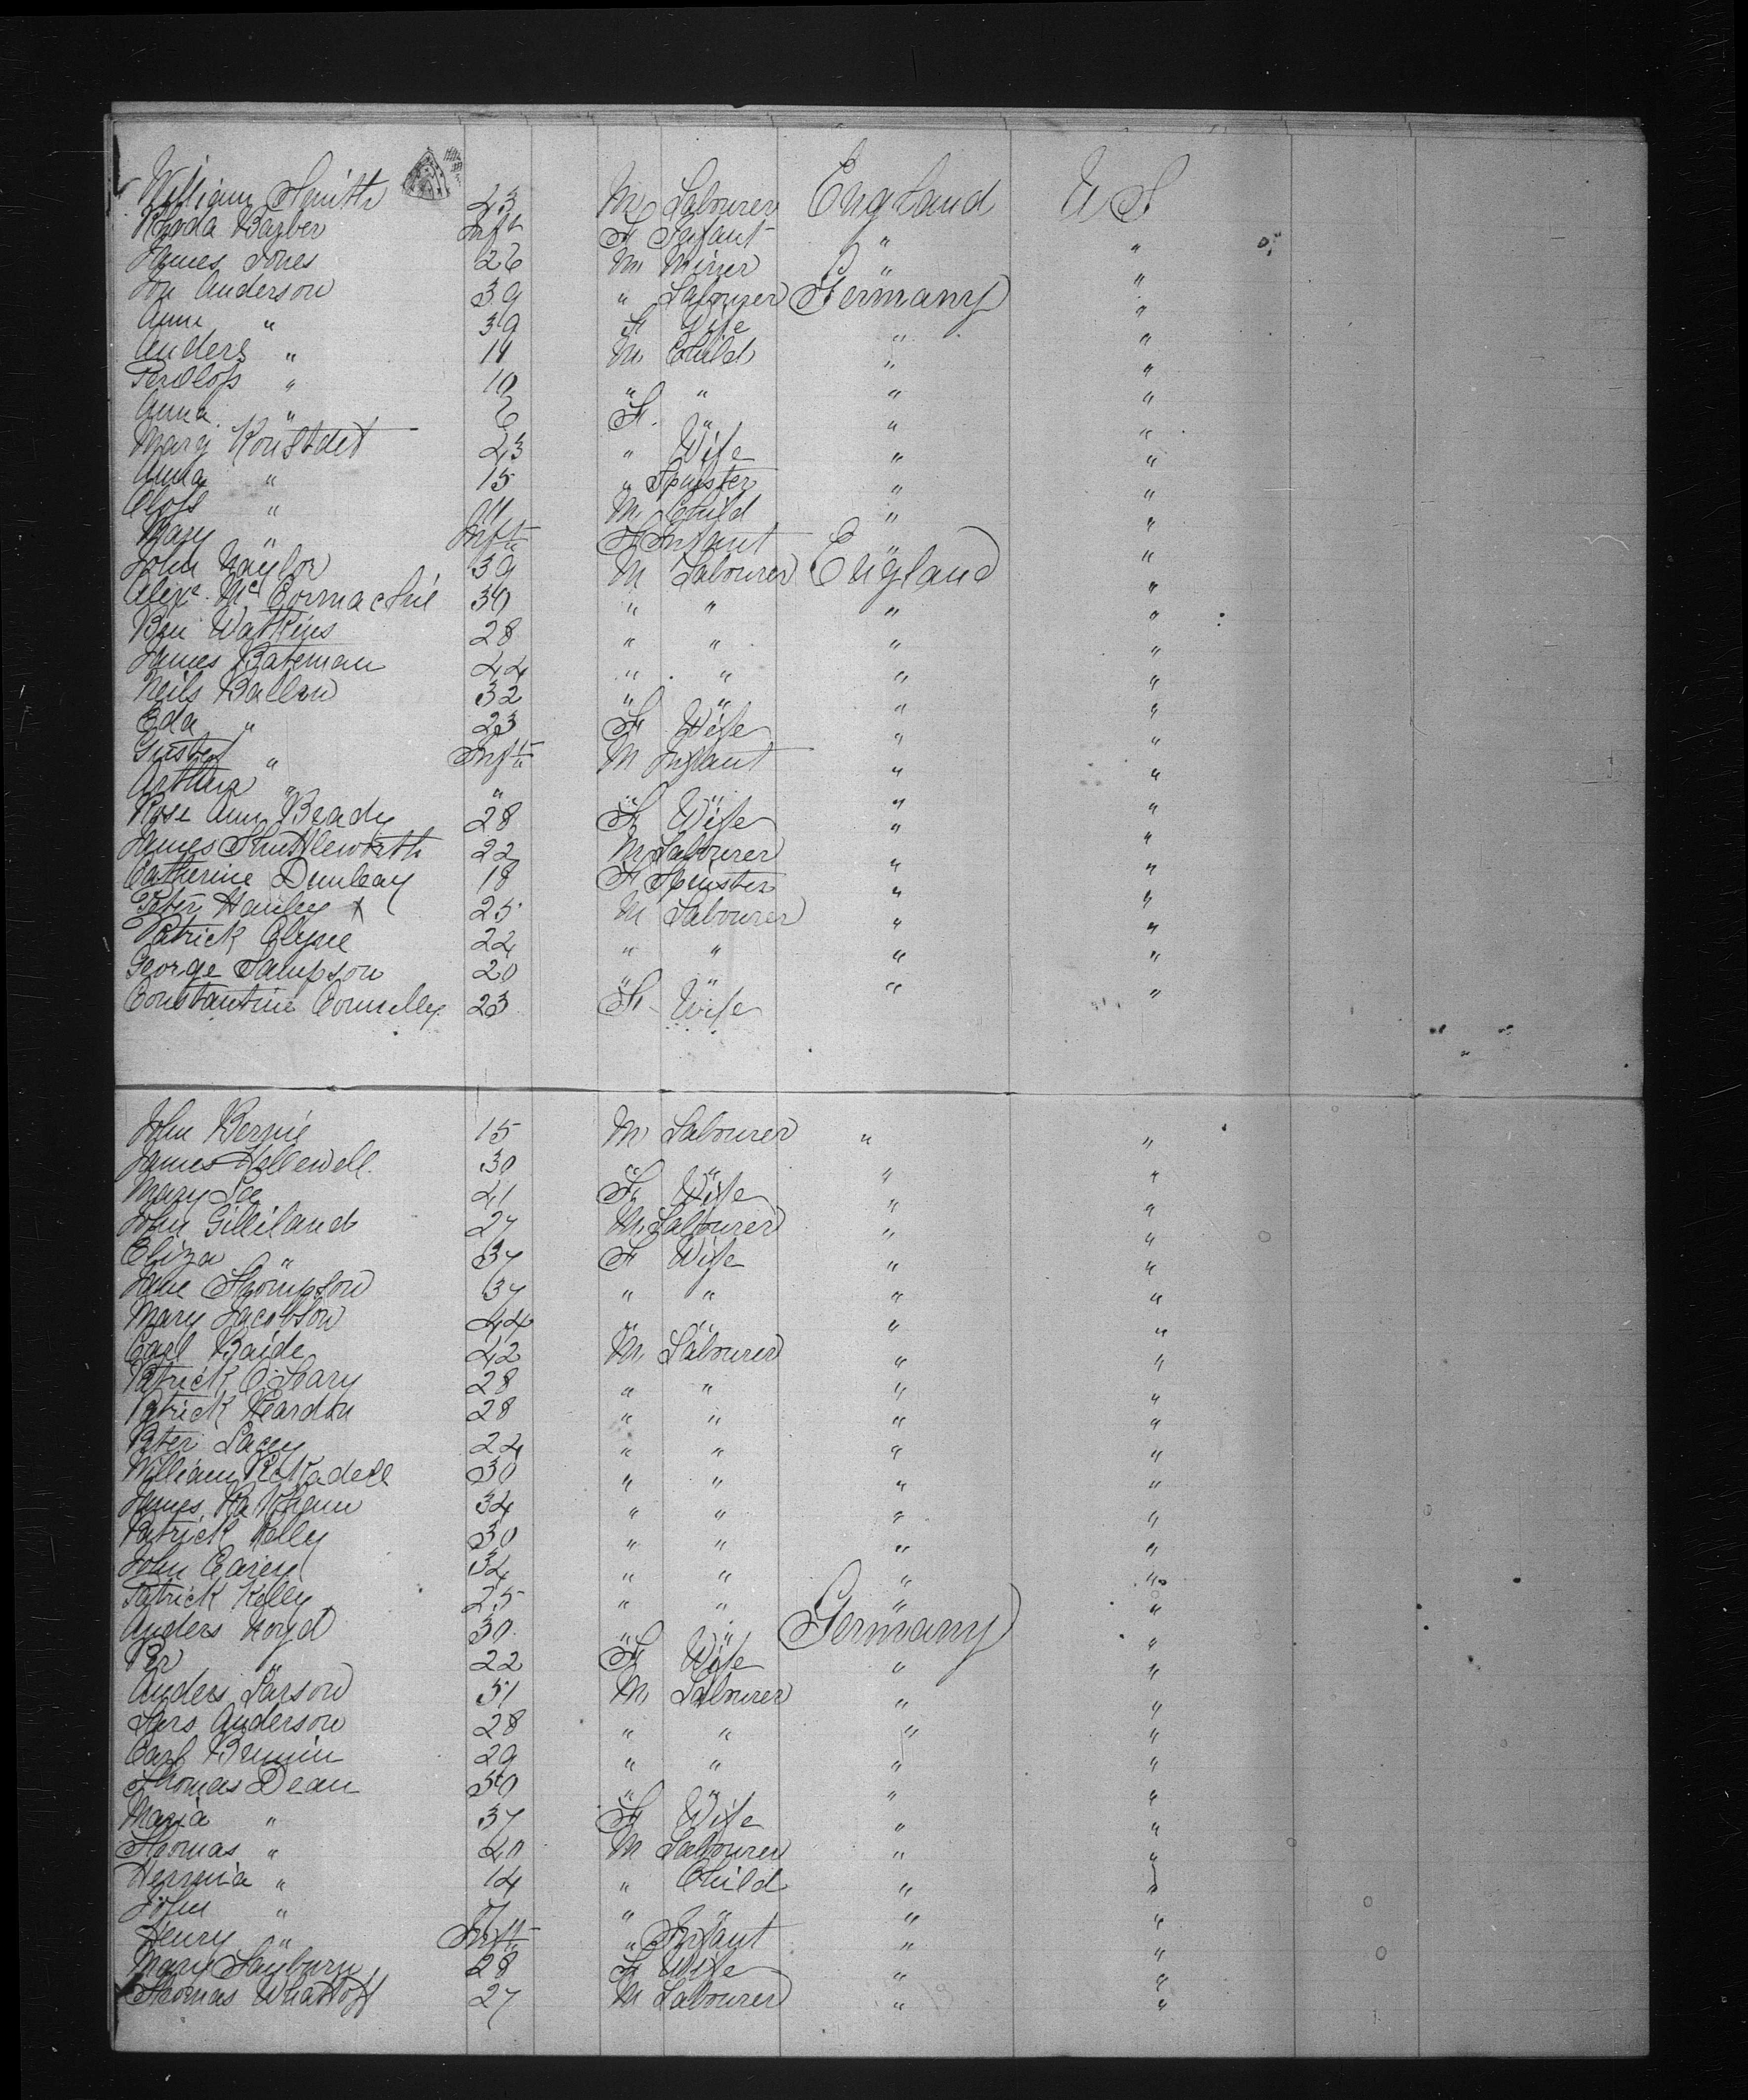 William Smith 23 M Labourer England U S
Rhoda Barber Inft F Infant " "
James Jones 26 M Miner " "
Jon Anderson 39 " Labourer Germany "
Ann " 39 F Wife " "
Anders " 11 M Child " "
Per Olof " 10 " " " "
Anna " 6 F " " "
Mary 23 " Wife " "
Anna " 15 " Spinster " "
Olof " M Child " "
Mary " Inft F Infant " "
John Naylor 39 M Labourer England "
Alexr. 30 " " " "
Ben Watkins 28 " " " "
James Bateman 44 " " " "
Neils 32 " " " "
Eda " 23 F Wife " "
Gustaf " Inft M Infant " "
Arthur " " " " " "
Rose Ann Beady 28 F Wife " "
James Shuttleworth 22 M Labourer " "
Catherine Dunleay 18 F Spinster " "
Peter Hanley X 25 M Labourer " "
Patrick Glyne 22 " " " "
George Sampson 20 " " " "
Constantine Connelly 23 F Wife " "
John Bernie 15 M Labourer " "
James Hellewell 30 " " " "
Mary Lee 21 F Wife " "
John Gilliland 27 M Labourer " "
Eliza " 37 F Wife " "
Jane Thompson 37 " " " "
Mary Jacobson 44 " " " "
Carl Baide 42 M Labourer " "
Patrick O'Leary 28 " " " "
Patrick Reardon 28 " " " "
Peter Lacey 22 " " " "
William 30 " " " "
James 34 " " " "
Patrick Kelly 30 " " " "
John Carey 34 " " " "
Patrick Kelly 25 " " " "
Anders 30 " " Germany "
Per " 22 F Wife " "
Anders Larson 51 M Labourer " "
Lars Anderson 28 " " " "
Carl 29 " " " "
Thomas Dean 50 " " " "
Maria " 37 F Wife " "
Thomas " 20 M Labourer " "
" 14 " Child " "
John " 7 " " " "
Henry " Inft " Infant " "
Mary 28 F Wife " "
Thomas 27 M Labourer " "